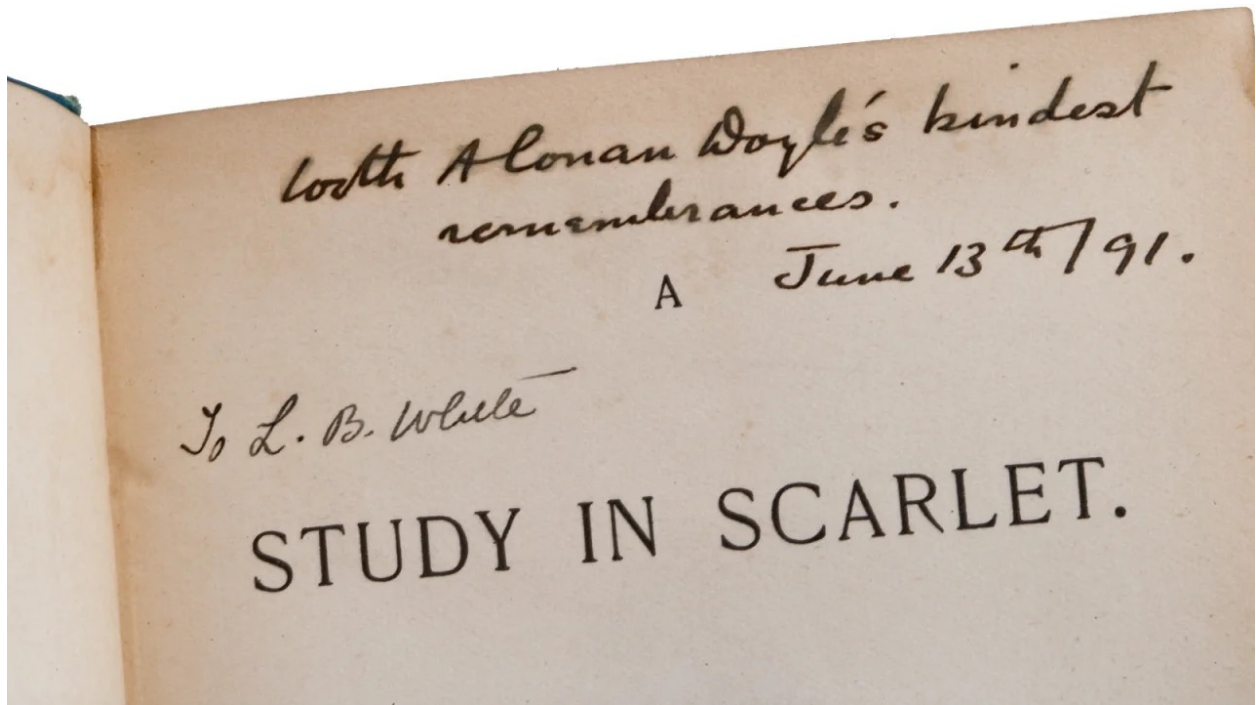 With A Conan Doyle's kindest
remembrances.
June 13th/91.
A
To L. B. White
STUDY IN SCARLET.